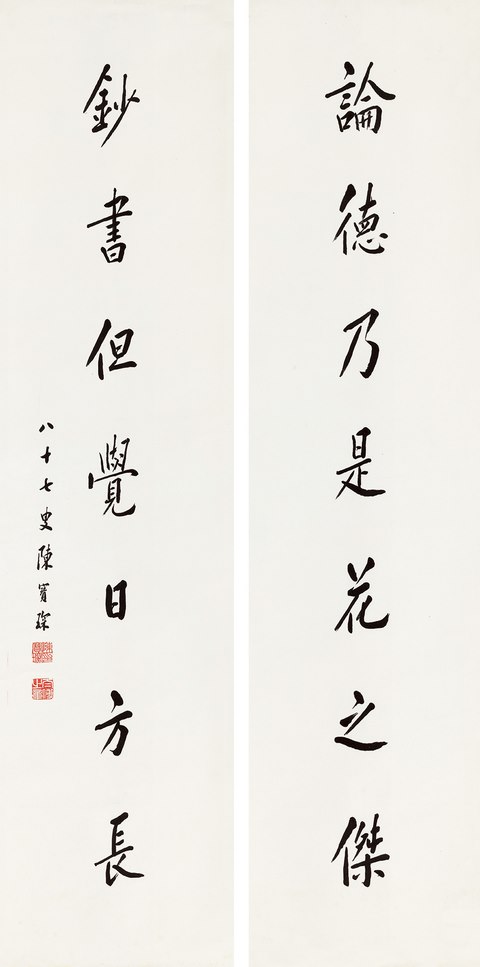 論德乃是花之傑
鈔書但覺日方長
八十七叟陳寶琛